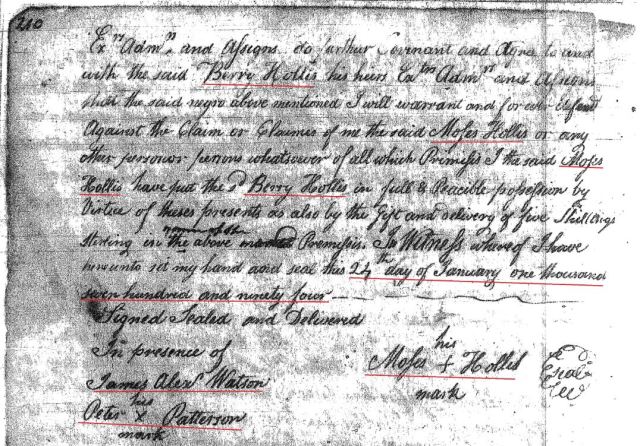 210
Exrs Admrs and Assigns do further Covenant and Agree to and
with the said Berry Hollis his heirs Extrs Admrs and Assigns
that the said negro above mentioned I will warrant and for ever defend
Against the Claim or Claimes of me the said Moses Hollis or any
other person or persons whatsoever of all which Premises I the said Moses
Hollis have put the sd Berry Hollis in full & Peacible possession by
Virtue of theses presents as also by the Gift and delivery of five Shillings
Sterling in the above Premises. In Witness whereof I have
hereunto set my hand and seal this 24th day of January one thousand
seven hundred and ninety four
Signed Sealed and Delivered
In presence of
James Alexr Watson
Peter his x mark Patterson
Moses his + mark Hollis
Seal